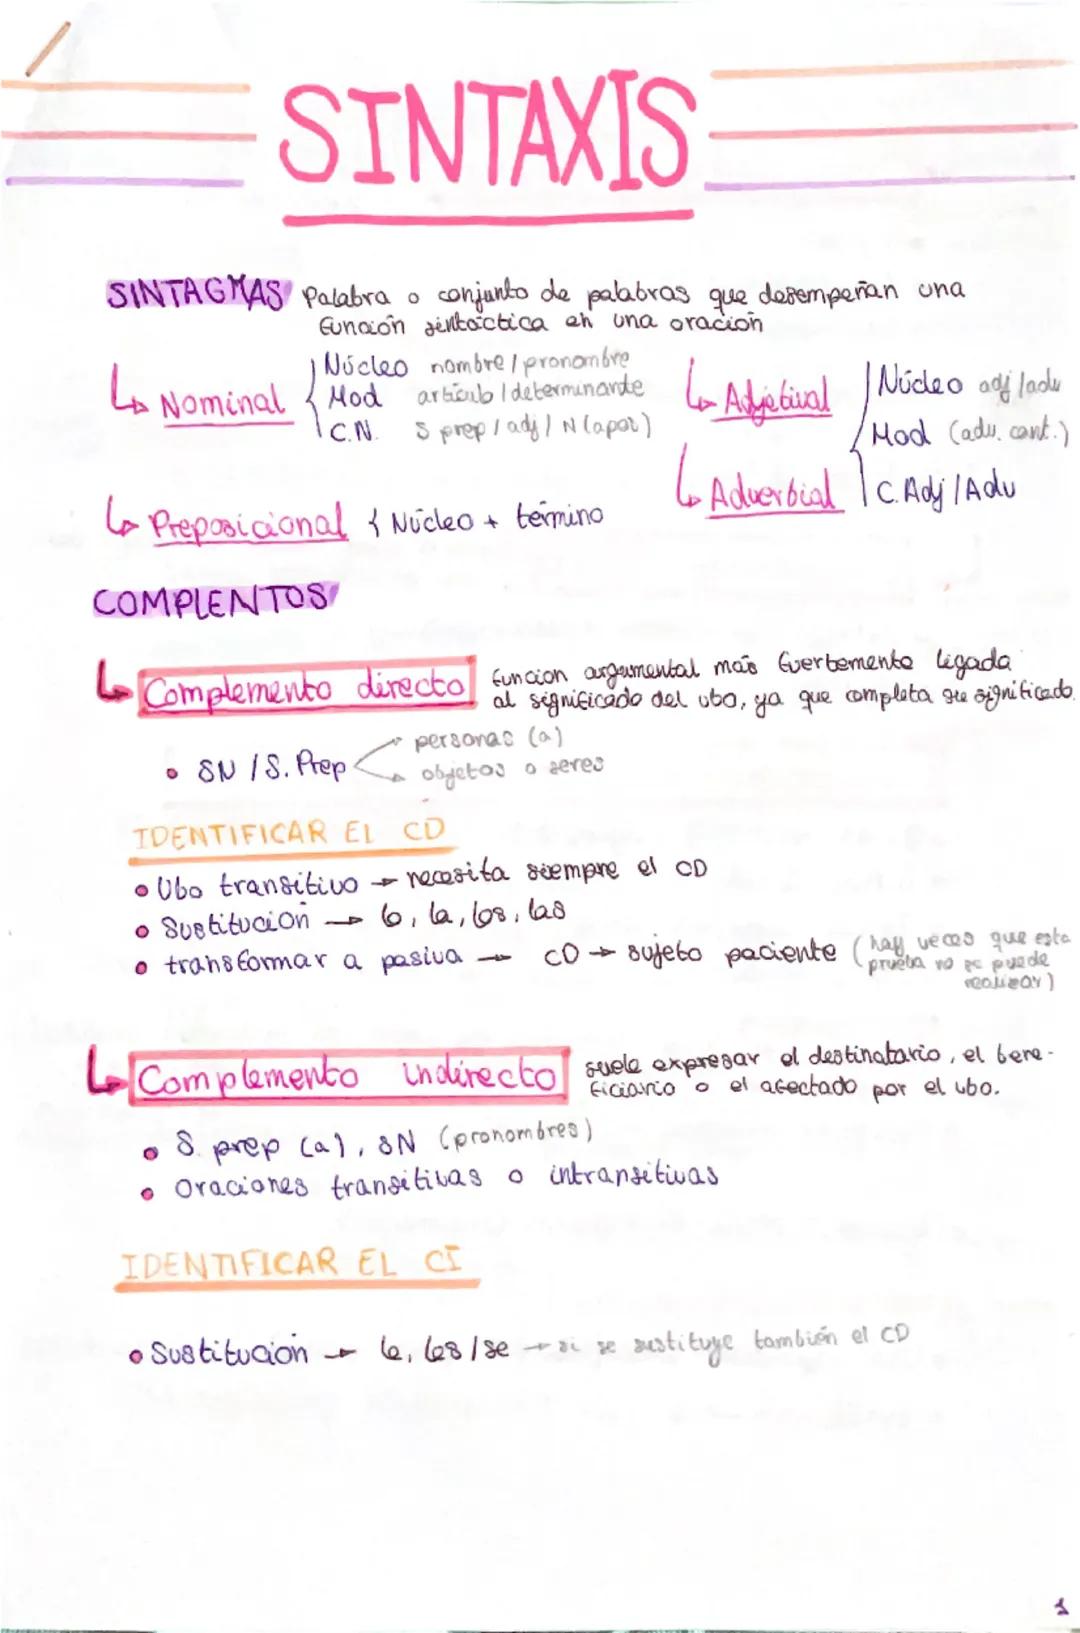 SINTAXIS
SINTAGMAS Palabra o conjunto de palabras que desempeñan una
función sintáctica en una oración
↳ Nominal { Núcleo nombre / pronombre
Mod artículo / determinante
C.N. S prep / adj / N (apos)
↳ Adjetival
↳ Adverbial
{ Núcleo adj / adv
Mod (adv. cant.)
C. Adj / Adv
↳ Preposicional { Núcleo + término
COMPLENTOS
↳ Complemento directo función argumental más fuertemente ligada
al significado del vbo, ya que completa su significado.
• SN / S. Prep → personas (a)
→ objetos o seres
IDENTIFICAR El CD
• Vbo transitivo → necesita siempre el CD
• Sustitución → lo, la, los, las
• transformar a pasiva → CD → sujeto paciente (hay veces que esta
prueba no se puede
realizar)
↳ Complemento indirecto suele expresar el destinatario, el bene-
ficiario o el afectado por el vbo.
• S. prep (a), SN (pronombres)
• Oraciones transitivas o intransitivas
IDENTIFICAR EL CI
• Sustitución → le, les / se → si se sustituye también el CD
1